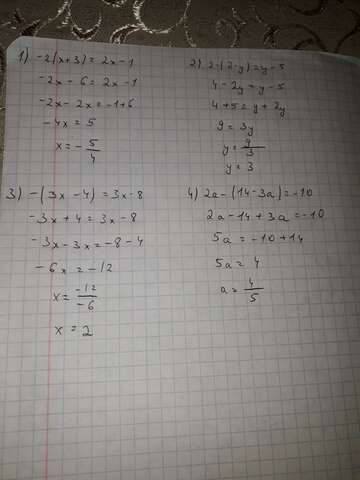 1) -2(x+3) = 2x-1
-2x - 6 = 2x-1
-2x - 2x = -1+6
-4x = 5
x = - 5/4
2) 2·(2-y) = y-5
4 - 2y = y-5
4+5 = y+2y
9 = 3y
y = 9/3
y = 3
3) -(3x -4) = 3x-8
-3x + 4 = 3x-8
-3x-3x = -8-4
-6x = -12
x = -12/-6
x = 2
4) 2a-(14-3a) = -10
2a-14+3a = -10
5a = -10+14
5a = 4
a = 4/5